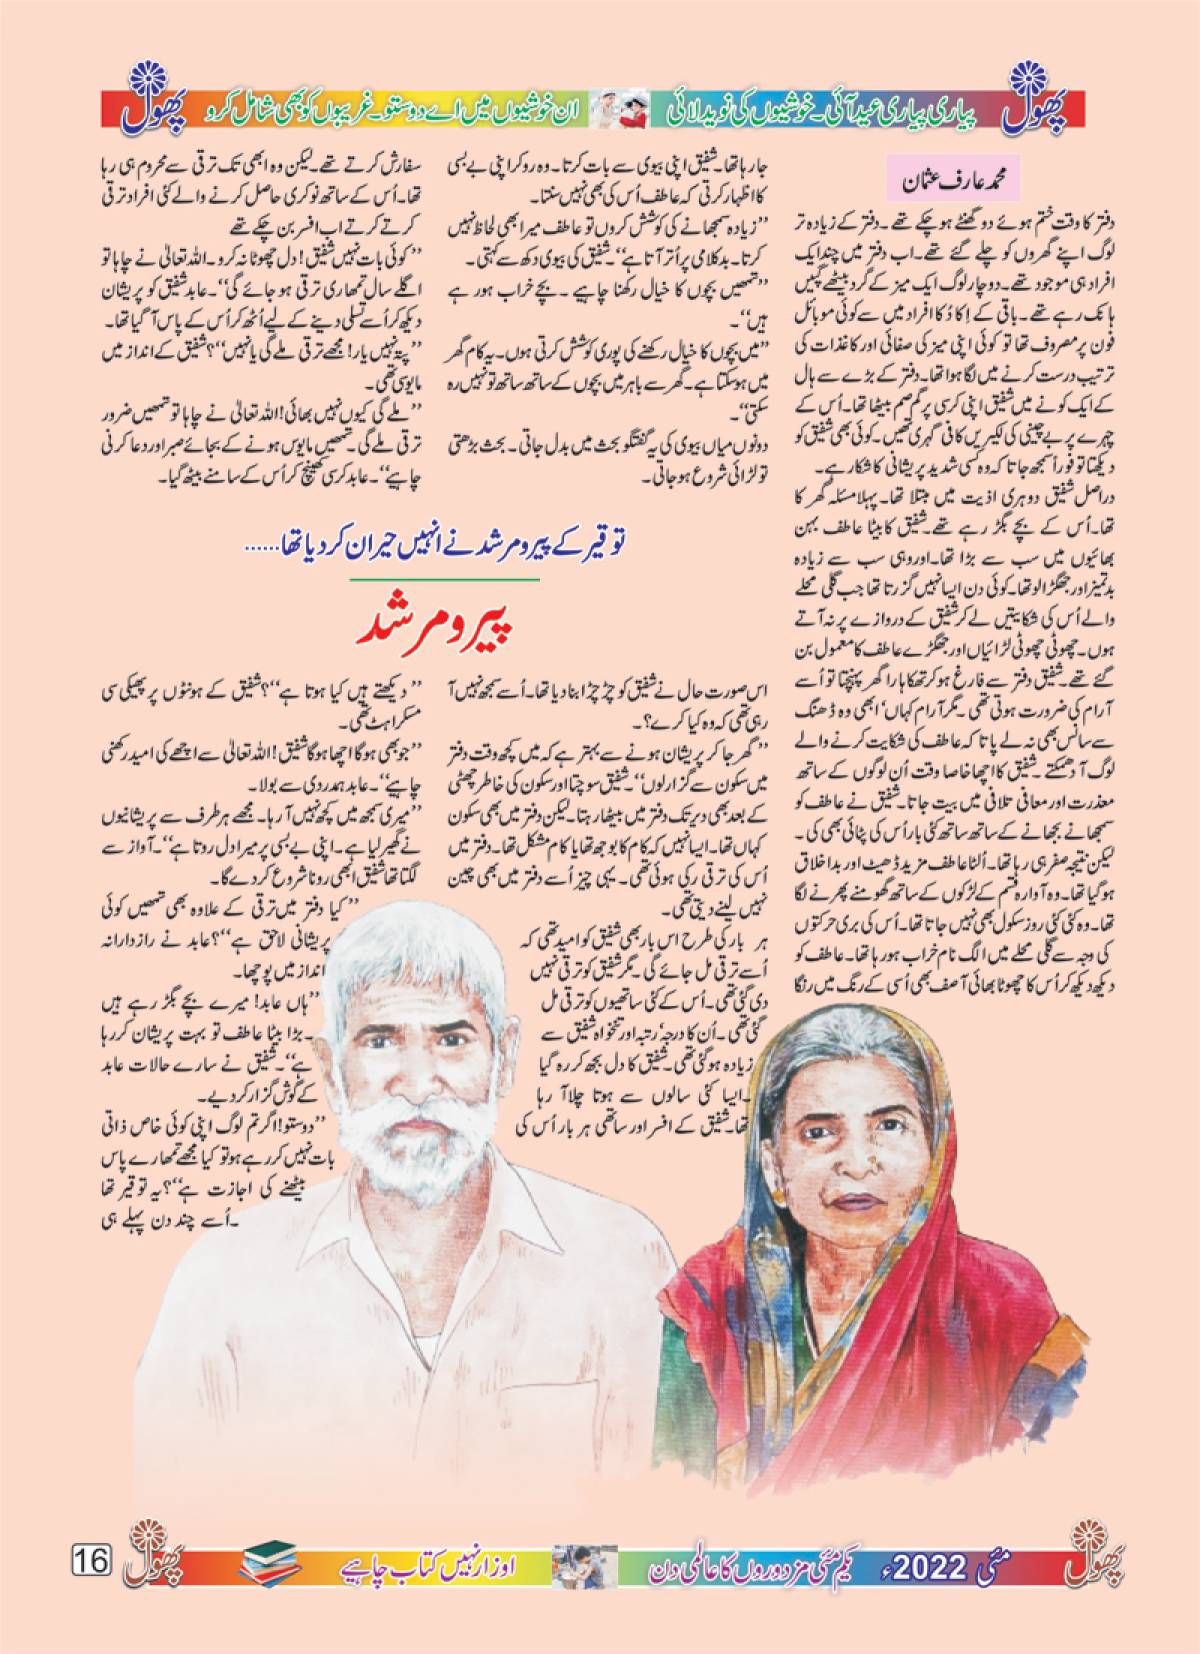 پھول
پیاری پیاری عید آئی۔ خوشیوں کی نوید لائی
ان خوشیوں میں اے دوستو۔ غریبوں کو بھی شامل کرو
پھول
محمد عارف عثمان
دفتر کا وقت ختم ہوئے دو گھنٹے ہو چکے تھے۔ دفتر کے زیادہ تر
لوگ اپنے گھروں کو چلے گئے تھے۔ اب دفتر میں چند ایک
افراد ہی موجود تھے۔ دو چار لوگ ایک میز کے گرد بیٹھے گپیں
ہانک رہے تھے۔ باقی کے اِکا دُکا افراد میں سے کوئی موبائل
فون پر مصروف تھا تو کوئی اپنی میز کی صفائی اور کاغذات کی
ترتیب درست کرنے میں لگا ہوا تھا۔ دفتر کے بڑے سے ہال
کے ایک کونے میں شفیق اپنی کرسی پر گم صم بیٹھا تھا۔ اُس کے
چہرے پر بے چینی کی لکیریں کافی گہری تھیں۔ کوئی بھی شفیق کو
دیکھتا تو فوراً سمجھ جاتا کہ وہ کسی شدید پریشانی کا شکار ہے۔
دراصل شفیق دوہری اذیت میں مبتلا تھا۔ پہلا مسئلہ گھر کا
تھا۔ اُس کے بچے بگڑ رہے تھے۔ شفیق کا بیٹا عاطف بہن
بھائیوں میں سب سے بڑا تھا۔ اور وہی سب سے زیادہ
بدتمیز اور جھگڑالو تھا۔ کوئی دن ایسا نہیں گزرتا تھا جب گلی محلے
والے اُس کی شکایتیں لے کر شفیق کے دروازے پر نہ آتے
ہوں۔ چھوٹی چھوٹی لڑائیاں اور جھگڑے عاطف کا معمول بن
گئے تھے۔ شفیق دفتر سے فارغ ہو کر تھکا ہارا گھر پہنچتا تو اُسے
آرام کی ضرورت ہوتی تھی۔ مگر آرام کہاں‘ ابھی وہ ڈھنگ
سے سانس بھی نہ لے پاتا کہ عاطف کی شکایت کرنے والے
لوگ آ دھمکتے۔ شفیق کا اچھا خاصا وقت اُن لوگوں کے ساتھ
معذرت اور معافی تلافی میں بیت جاتا۔ شفیق نے عاطف کو
سمجھانے بجھانے کے ساتھ ساتھ کئی بار اُس کی پٹائی بھی کی۔
لیکن نتیجہ صفر ہی رہا تھا۔ اُلٹا عاطف مزید ڈھیٹ اور بداخلاق
ہو گیا تھا۔ وہ آوارہ قسم کے لڑکوں کے ساتھ گھومنے پھرنے لگا
تھا۔ وہ کئی کئی روز سکول بھی نہیں جاتا تھا۔ اُس کی بری حرکتوں
کی وجہ سے گلی محلے میں الگ نام خراب ہو رہا تھا۔ عاطف کو
دیکھ دیکھ کر اُس کا چھوٹا بھائی آصف بھی اُسی کے رنگ میں رنگا
جا رہا تھا۔ شفیق اپنی بیوی سے بات کرتا۔ وہ رو کر اپنی بے بسی
کا اظہار کرتی کہ عاطف اُس کی بھی نہیں سنتا۔
’’زیادہ سمجھانے کی کوشش کروں تو عاطف میرا بھی لحاظ نہیں
کرتا۔ بدکلامی پر اُتر آتا ہے‘‘۔ شفیق کی بیوی دکھ سے کہتی۔
’’تمھیں بچوں کا خیال رکھنا چاہیے۔ بچے خراب ہو رہے
ہیں‘‘۔
’’میں بچوں کا خیال رکھنے کی پوری کوشش کرتی ہوں۔ یہ کام گھر
میں ہو سکتا ہے۔ گھر سے باہر میں بچوں کے ساتھ ساتھ تو نہیں رہ
سکتی‘‘۔
دونوں میاں بیوی کی یہ گفتگو بحث میں بدل جاتی۔ بحث بڑھتی
تو لڑائی شروع ہو جاتی۔
توقیر کے پیرومرشد نے انہیں حیران کر دیا تھا......
پیرومرشد
اس صورت حال نے شفیق کو چڑچڑا بنا دیا تھا۔ اُسے سمجھ نہیں آ
رہی تھی کہ وہ کیا کرے؟۔
’’گھر جا کر پریشان ہونے سے بہتر ہے کہ میں کچھ وقت دفتر
میں سکون سے گزار لوں‘‘۔ شفیق سوچتا اور سکون کی خاطر چھٹی
کے بعد بھی دیر تک دفتر میں بیٹھا رہتا۔ لیکن دفتر میں بھی سکون
کہاں تھا۔ ایسا نہیں کہ کام کا بوجھ تھا یا کام مشکل تھا۔ دفتر میں
اُس کی ترقی رکی ہوئی تھی۔ یہی چیز اُسے دفتر میں بھی چین
نہیں لینے دیتی تھی۔
ہر بار کی طرح اس بار بھی شفیق کو امید تھی کہ
اُسے ترقی مل جائے گی۔ مگر شفیق کو ترقی نہیں
دی گئی تھی۔ اُس کے کئی ساتھیوں کو ترقی مل
گئی تھی۔ اُن کا درجہ‘ رتبہ اور تنخواہ شفیق سے
زیادہ ہو گئی تھی۔ شفیق کا دل بجھ کر رہ گیا
۔ ایسا کئی سالوں سے ہوتا چلا آ رہا
تھا۔ شفیق کے افسر اور ساتھی ہر بار اُس کی
سفارش کرتے تھے۔ لیکن وہ ابھی تک ترقی سے محروم ہی رہا
تھا۔ اُس کے ساتھ نوکری حاصل کرنے والے کئی افراد ترقی
کرتے کرتے اب افسر بن چکے تھے
’’کوئی بات نہیں شفیق! دل چھوٹا نہ کرو۔ اللہ تعالیٰ نے چاہا تو
اگلے سال تمھاری ترقی ہو جائے گی‘‘۔ عابد شفیق کو پریشان
دیکھ کر اُسے تسلی دینے کے لیے اُٹھ کر اُس کے پاس آ گیا تھا۔
’’پتہ نہیں یار! مجھے ترقی ملے گی یا نہیں‘‘؟ شفیق کے انداز میں
مایوسی تھی۔
’’ملے گی کیوں نہیں بھائی! اللہ تعالیٰ نے چاہا تو تمھیں ضرور
ترقی ملے گی۔ تمھیں مایوس ہونے کے بجائے صبر اور دعا کرنی
چاہیے‘‘۔ عابد کرسی کھینچ کر اُس کے سامنے بیٹھ گیا۔
’’دیکھتے ہیں کیا ہوتا ہے‘‘؟ شفیق کے ہونٹوں پر پھیکی سی
مسکراہٹ تھی۔
’’جو بھی ہوگا اچھا ہوگا شفیق! اللہ تعالیٰ سے اچھے کی امید رکھنی
چاہیے‘‘۔ عابد ہمدردی سے بولا۔
’’میری سمجھ میں کچھ نہیں آ رہا۔ مجھے ہر طرف سے پریشانیوں
نے گھیر لیا ہے۔ اپنی بے بسی پر میرا دل روتا ہے‘‘۔ آواز سے
لگتا تھا شفیق ابھی رونا شروع کر دے گا۔
’’کیا دفتر میں ترقی کے علاوہ بھی تمھیں کوئی
پریشانی لاحق ہے‘‘؟ عابد نے رازدارانہ
انداز میں پوچھا۔
’’ہاں عابد! میرے بچے بگڑ رہے ہیں
۔ بڑا بیٹا عاطف تو بہت پریشان کر رہا
ہے‘‘۔ شفیق نے سارے حالات عابد
کے گوش گزار کر دیے۔
’’دوستو! اگر تم لوگ اپنی کوئی خاص ذاتی
بات نہیں کر رہے ہو تو کیا مجھے تمھارے پاس
بیٹھنے کی اجازت ہے‘‘؟ یہ توقیر تھا
۔ اُسے چند دن پہلے ہی
پھول
مئی 2022ء
یکم مئی مزدوروں کا عالمی دن
اوزار نہیں کتاب چاہیے
پھول
16